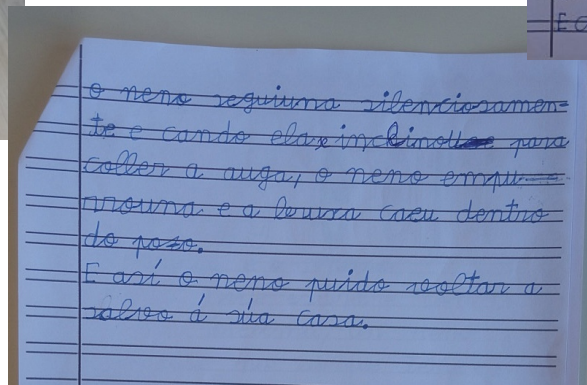 E C
o neno seguiuna silenciosamen-
te e cando ela inclinouse para
coller a auga, o neno empu-
rrouna e a bruxa caeu dentro
do pozo.
E así o neno puido voltar a
salvo á súa casa.